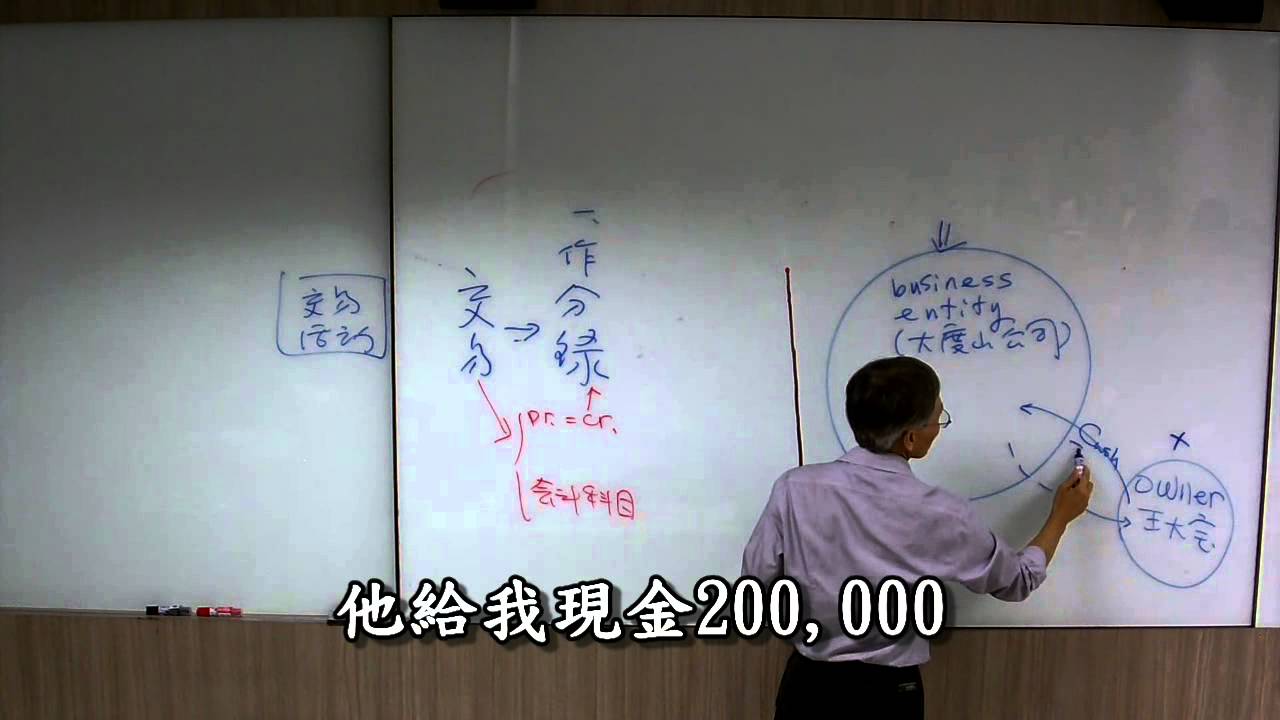 交易
活动
交易
→
一、作分錄
Dr. = Cr.
会计科目
business
entity
(大度山公司)
Cash
x
owner
王大宅
他給我現金200,000